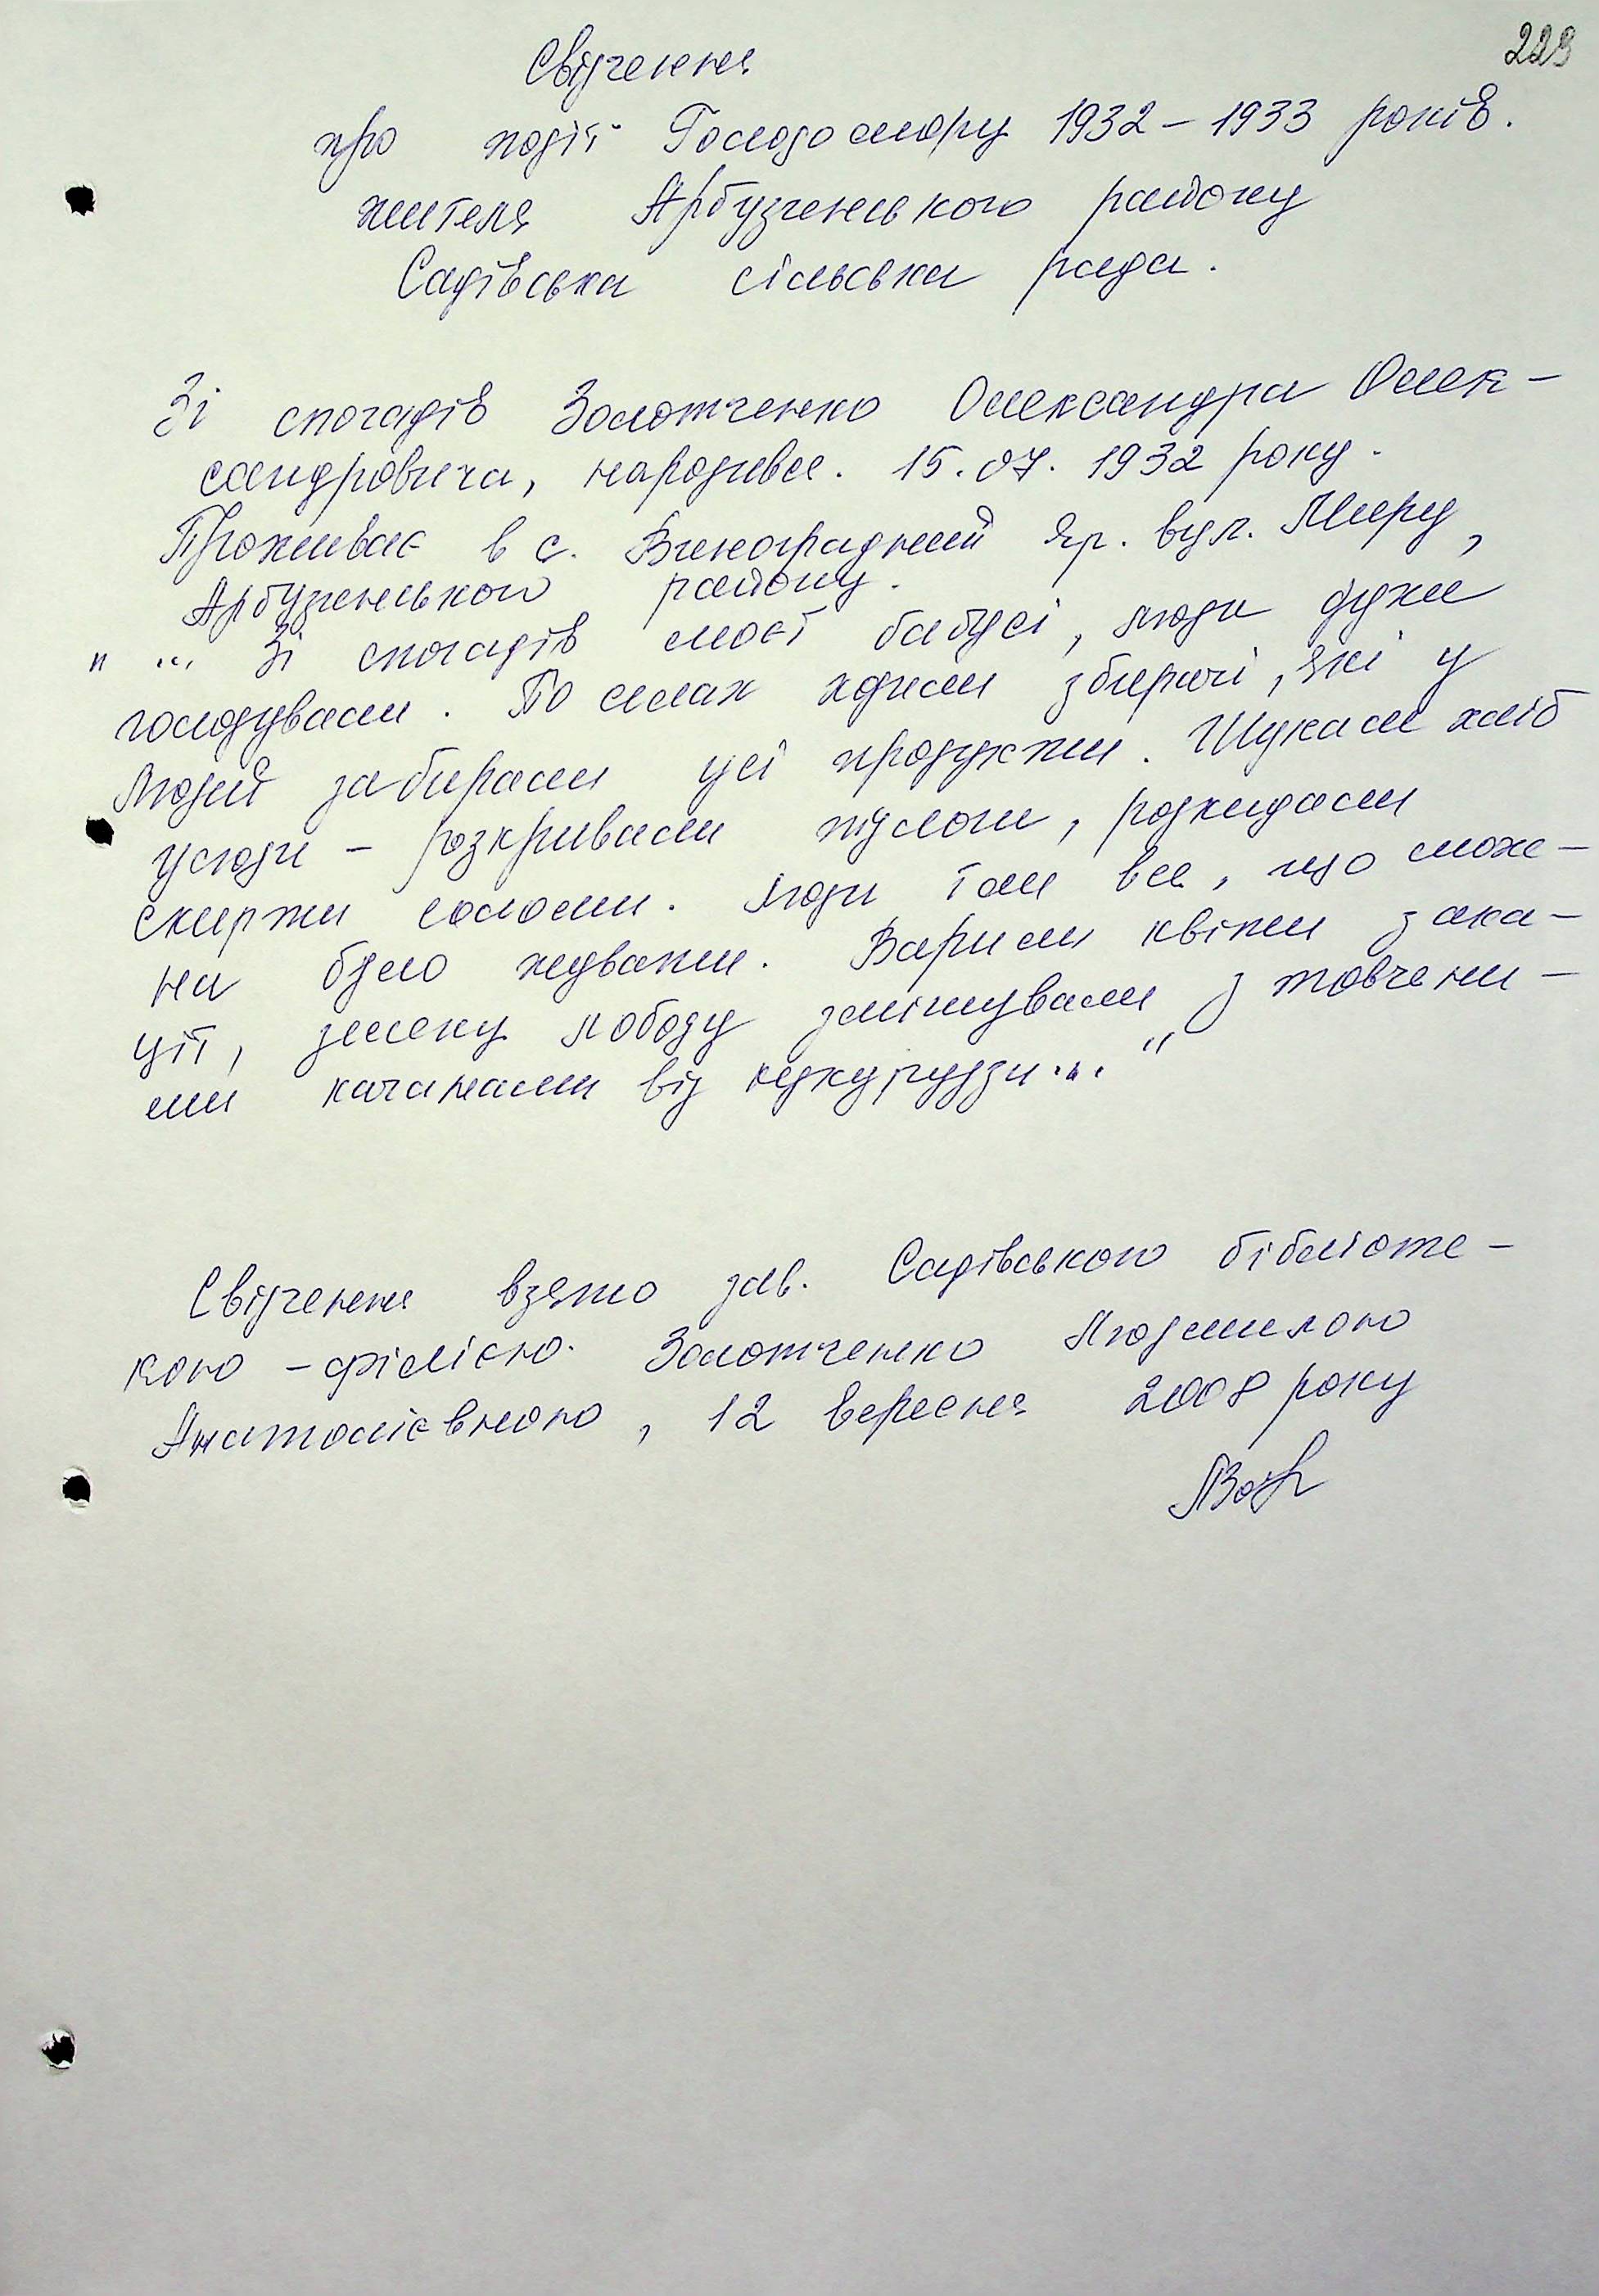 229
Свідчення
про події Голодомору 1932 – 1933 років.
жителя Арбузинського району
Садівська сільська рада.
Зі спогадів Золотченко Олександра Олек-
сандровича, народився. 15.07. 1932 року.
Проживає в с. Виноградний Яр. вул. Миру,
Арбузинського району.
" ... Зі спогадів моєї бабусі, люди дуже
голодували. По селах ходили збирачі, які у
людей забирали усі продукти. Шукали хліб
усюди – розкривали
скирти соломи. Люди їли все, що мож-
на було жувати. Варили квіти ака-
ції, змелену лободу змішували з товчени-
ми качанами від кукурудзи..."
Свідчення взято зав. Садівською бібліоте-
кою – філією. Золотченко Людмилою
Анатоліївною, 12 вересня 2008 року